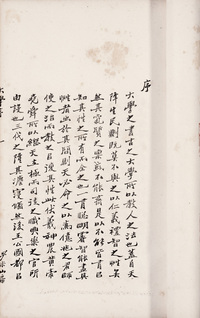 序
大學之書古之大學所以教人之法也蓋自天
降生民則既莫不與之以仁義禮智之性矣
然其氣質之稟或不能齊是以不能皆有以
知其性之所有而全之也一有聰明睿智能盡其
性者出於其間則天必命之以為億兆之君師
使之治而教之以復其性此伏羲神農黃帝
堯舜所以繼天立極而司徒之職典樂之官所
由設也三代之隆其法寖備然後王宮國都以